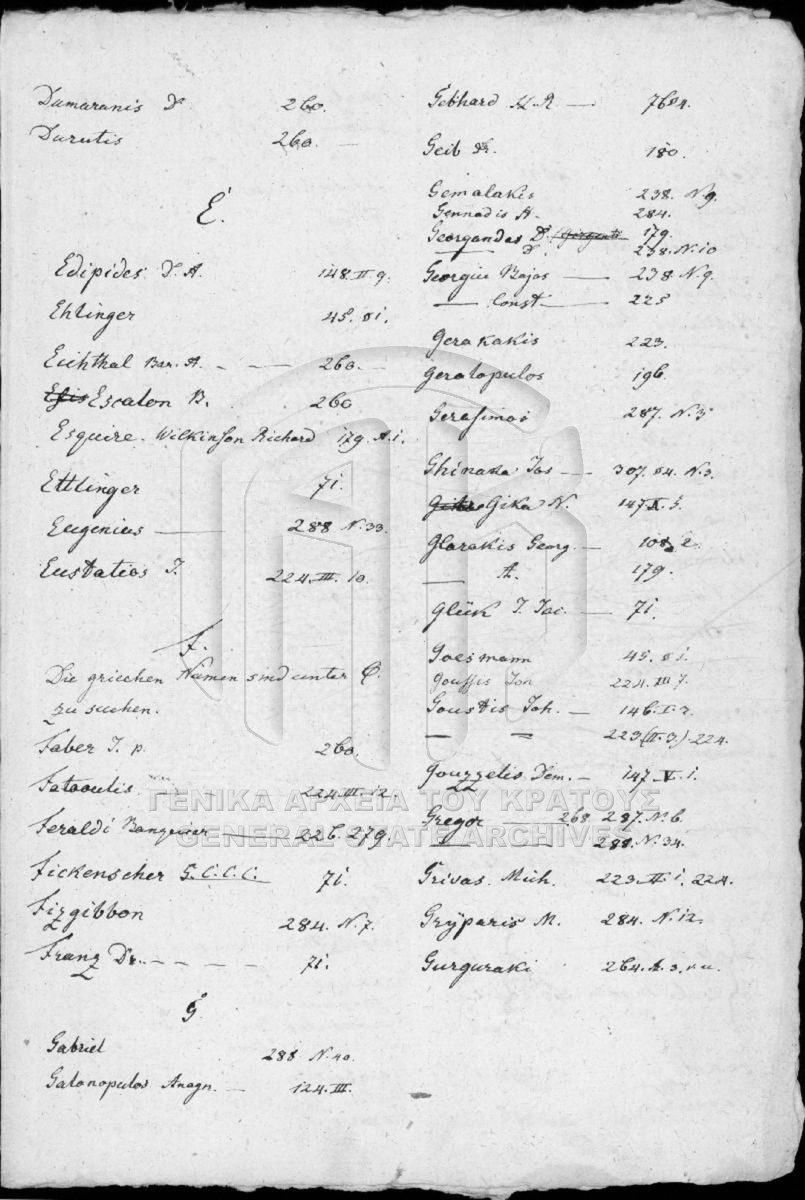 Damaranis D. 260.
Darutis 260.
E.
Edipides D. A. 148. II. 9.
Ehlinger 45. 01.
Eichthal Bar. A. - - 260.
Escalon B. 260
Esquire. Wilkinson Richard 179. A. i.
Ettlinger 71.
Eugenius — 288 N. 33.
Eustatios J. 224. III. 10.
F.
Die griechen Namen sind unter Φ.
zu suchen.
Faber J. p. 260.
Fatooulis 224. III. 12.
Feraldi Banquier — 226. 279.
Fickenscher G. C. C. C. 71.
Fizgibbon 284. N. 7.
Franz Dr. - - - - 71.
G.
Gabriel 288 N. 40.
Galonopulos Anagn. — 124. III.
Gebhard — 7604.
Geib Dr. 180.
Gemalakis 238. N. 9.
Gennadis A. 284.
Georgandas D. 179.
— D. 238. N. 10
Georgiu Bajos — 238 N. 9.
— Const — 225
Gerakakis 223.
Gerolopulos 196.
Gerasimos 287. N. 3
Ghinaka Jos — 307. 04. N. 3.
Gika N. 147. X. 5.
Glarakis Georg. — 108. 2.
— A. 179.
Glück J. Jac. — 71.
Goesmann 45. 01.
Gouffis Ion 224. III 7.
Goustis Joh. — 146. I. 2.
— = 223 (II. 3.) 224.
Gouzzelis Dem. — 147. V. 1.
Gregor — 268. 287. N. 6.
— — 288. N. 34.
Grivas. Mich. 223. II. 1. 224.
Gryparis M. 284. N. 12.
Gurguraki 264. A. 3.
ΓΕΝΙΚΑ ΑΡΧΕΙΑ ΤΟΥ ΚΡΑΤΟΥΣ
GENERAL STATE ARCHIVES